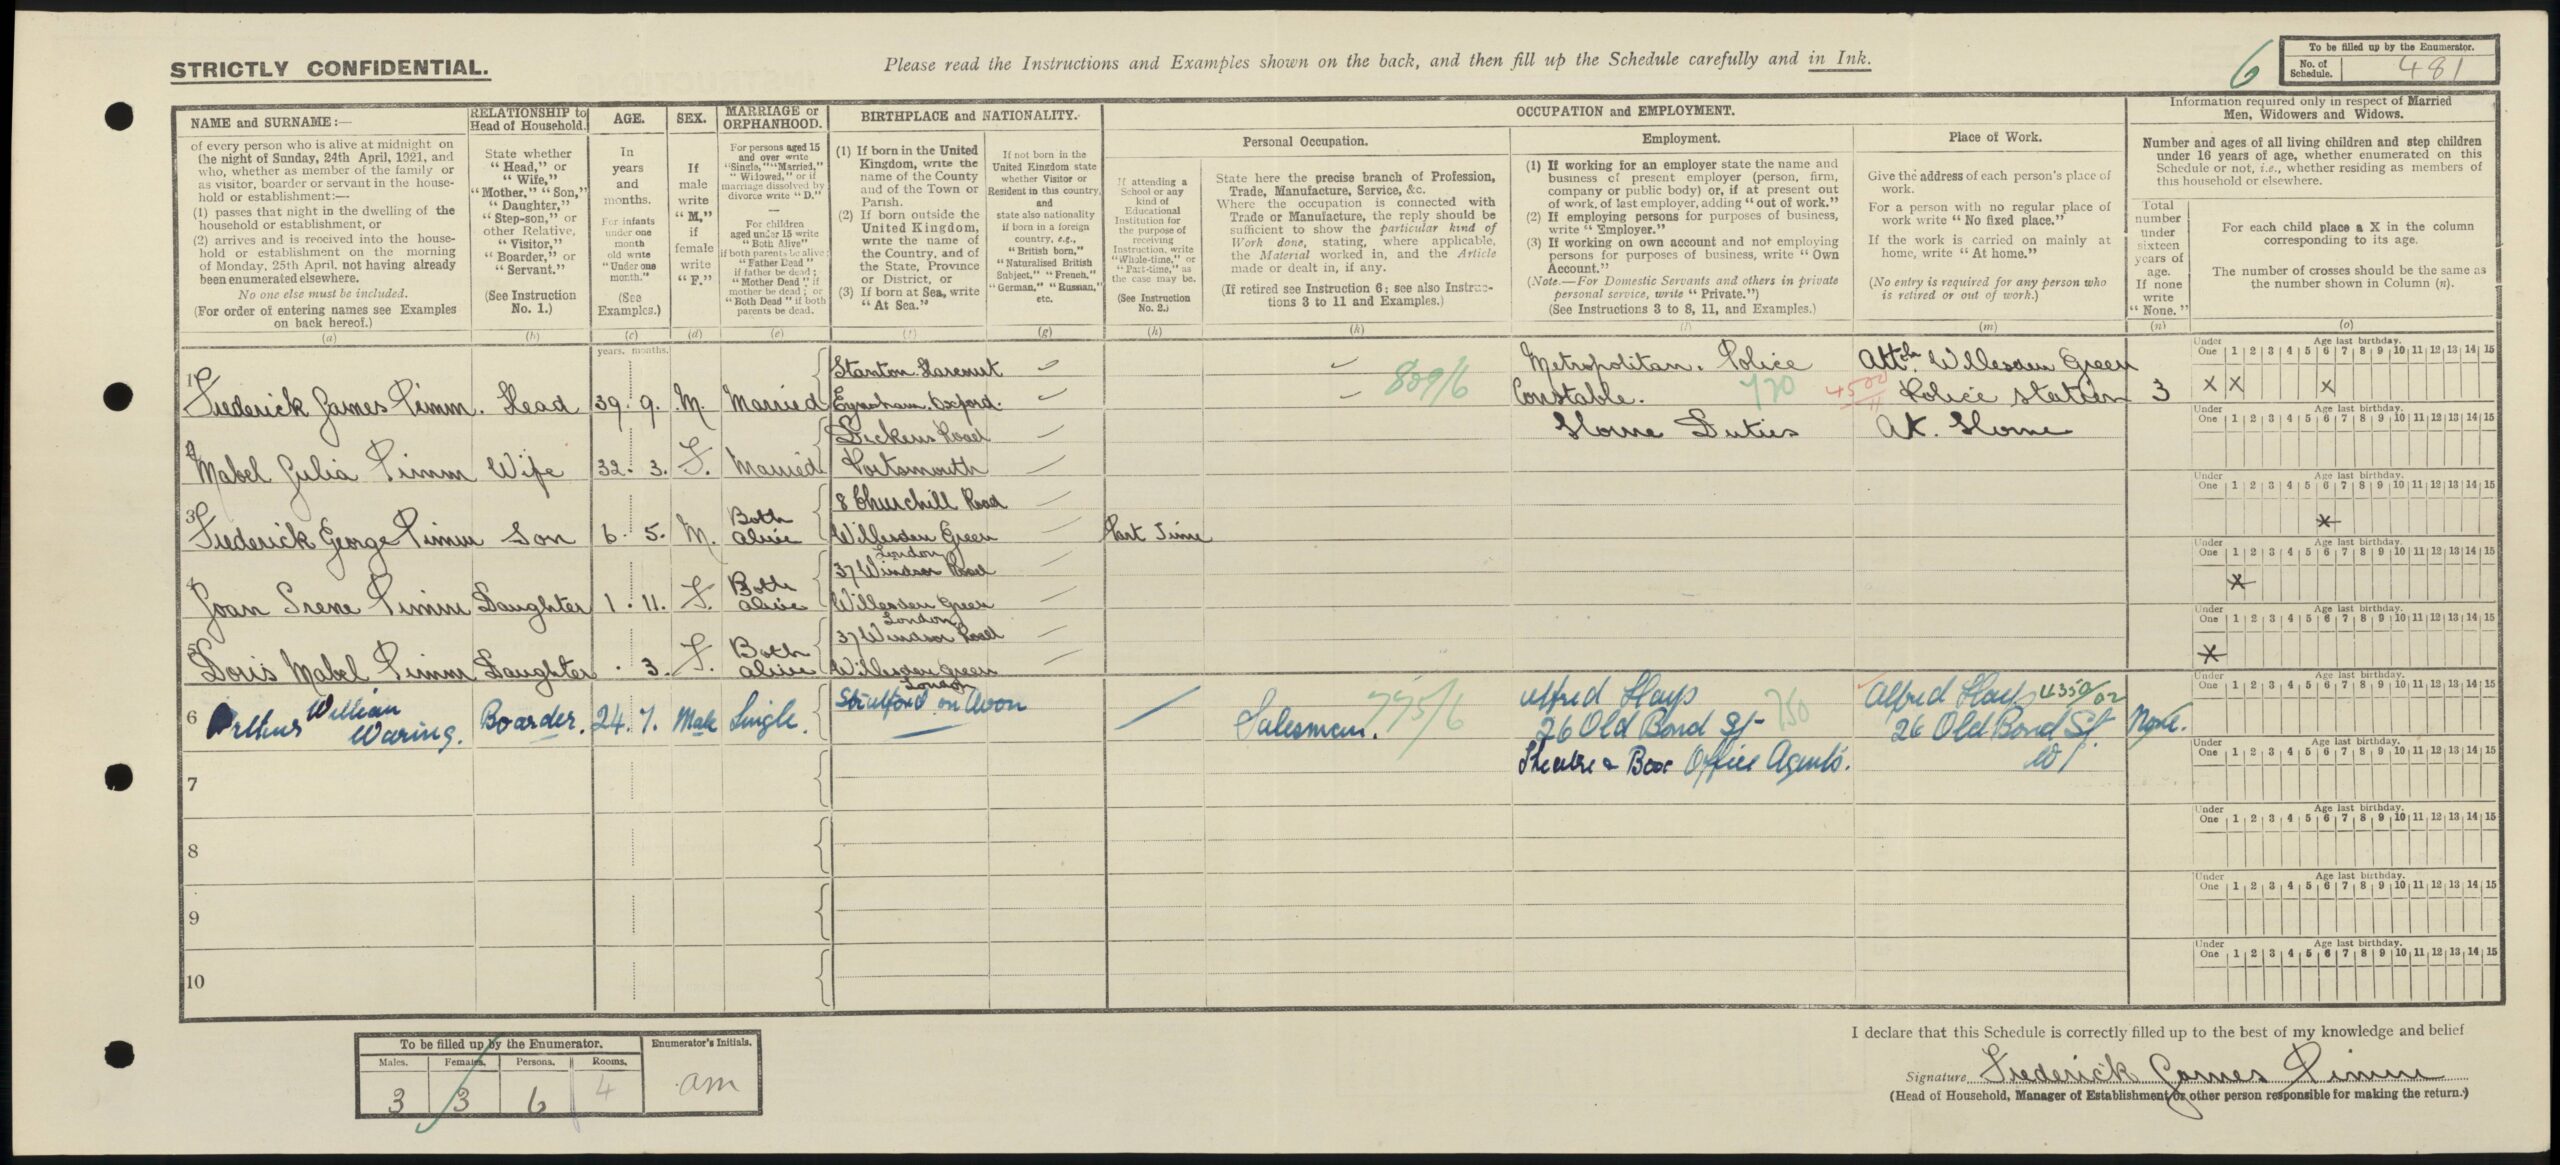 STRICTLY CONFIDENTIAL.
Please read the Instructions and Examples shown on the back, and then fill up the Schedule carefully and in Ink.
6
To be filled up by the Enumerator.
No. of Schedule. 481
NAME and SURNAME:—
of every person who is alive at midnight on
the night of Sunday, 24th April, 1921, and
who, whether as member of the family or
as visitor, boarder or servant in the house-
hold or establishment:—
(1) passes that night in the dwelling of the
household or establishment, or
(2) arrives and is received into the house-
hold or establishment on the morning
of Monday, 25th April, not having already
been enumerated elsewhere.
No one else must be included.
(For order of entering names see Examples
on back hereof.)
(a)
RELATIONSHIP to
Head of Household.
State whether
"Head," or
"Wife,"
"Mother," "Son,"
"Daughter,"
"Step-son," or
other Relative,
"Visitor,"
"Boarder," or
"Servant."
(See Instruction
No. 1.)
(b)
AGE.
In
years
and
months.
For infants
under one
month
old write
"Under one
month."
(See
Examples.)
(c)
SEX.
If
male
write
"M,"
if
female
write
"F."
(d)
MARRIAGE or
ORPHANHOOD.
For persons aged 15
and over write
"Single," "Married,"
"Widowed," or if
marriage dissolved by
divorce write "D."
For children
aged under 15 write
"Both Alive"
if both parents be alive;
"Father Dead"
if father be dead;
"Mother Dead" if
mother be dead; or
"Both Dead" if both
parents be dead.
(e)
BIRTHPLACE and NATIONALITY.
(1) If born in the United
Kingdom, write the
name of the County
and of the Town or
Parish.
(2) If born outside the
United Kingdom,
write the name of
the Country, and of
the State, Province
or District, or
(3) If born at Sea, write
"At Sea."
(f)
If not born in the
United Kingdom state
whether Visitor or
Resident in this country,
and
state also nationality
if born in a foreign
country, e.g.,
"British born,"
"Naturalised British
Subject," "French,"
"German," "Russian,"
etc.
(g)
OCCUPATION and EMPLOYMENT.
Personal Occupation.
If attending a
School or any
kind of
Educational
Institution for
the purpose of
receiving
Instruction, write
"Whole-time," or
"Part-time," as
the case may be.
(See Instruction
No. 2.)
(h)
State here the precise branch of Profession,
Trade, Manufacture, Service, &c.
Where the occupation is connected with
Trade or Manufacture, the reply should be
sufficient to show the particular kind of
Work done, stating, where applicable,
the Material worked in, and the Article
made or dealt in, if any.
(If retired see Instruction 6; see also Instruc-
tions 3 to 11 and Examples.)
(k)
Employment.
(1) If working for an employer state the name and
business of present employer (person, firm,
company or public body) or, if at present out
of work, of last employer, adding "out of work."
(2) If employing persons for purposes of business,
write "Employer."
(3) If working on own account and not employing
persons for purposes of business, write "Own
Account."
(Note.—For Domestic Servants and others in private
personal service, write "Private.")
(See Instructions 3 to 8, 11, and Examples.)
(l)
Place of Work.
Give the address of each person's place of
work.
For a person with no regular place of
work write "No fixed place."
If the work is carried on mainly at
home, write "At home."
(No entry is required for any person who
is retired or out of work.)
(m)
Information required only in respect of Married
Men, Widowers and Widows.
Number and ages of all living children and step children
under 16 years of age, whether enumerated on this
Schedule or not, i.e., whether residing as members of
this household or elsewhere.
Total
number
under
sixteen
years of
age.
If none
write
"None."
(n)
For each child place a X in the column
corresponding to its age.
The number of crosses should be the same as
the number shown in Column (n).
(o)
years. months.
Under One Age last birthday. 1 2 3 4 5 6 7 8 9 10 11 12 13 14 15
1 Frederick James Pimm. Head 39. 9. M. Married Stanton Harcourt Eynsham. Oxford. 809/6 Metropolitan. Police Constable. 770 4500/11 Attch Willesden Green Police Station 3 X X X
Under One Age last birthday. 1 2 3 4 5 6 7 8 9 10 11 12 13 14 15
2 Mabel Julia Pimm Wife 32. 3. F. Married Dickens Road Portsmouth Home Duties At. Home
Under One Age last birthday. 1 2 3 4 5 6 7 8 9 10 11 12 13 14 15
3 Frederick George Pimm Son 6. 5. M. Both alive 8 Churchill Road Willesden Green London Part Time X
Under One Age last birthday. 1 2 3 4 5 6 7 8 9 10 11 12 13 14 15
4 Joan Irene Pimm Daughter 1. 11. F. Both alive 37 Windsor Road Willesden Green London X
Under One Age last birthday. 1 2 3 4 5 6 7 8 9 10 11 12 13 14 15
5 Doris Mabel Pimm Daughter . 3. F. Both alive 37 Windsor Road Willesden Green London X
Under One Age last birthday. 1 2 3 4 5 6 7 8 9 10 11 12 13 14 15
6 Arthur William Waring. Boarder. 24. 7. Male Single. Stratford on Avon Salesman. 775/6 Alfred Hays 26 Old Bond St 750 Theatre & Box Office Agents. Alfred Hays 4350/02 26 Old Bond St. W1 None.
Under One Age last birthday. 1 2 3 4 5 6 7 8 9 10 11 12 13 14 15
7
Under One Age last birthday. 1 2 3 4 5 6 7 8 9 10 11 12 13 14 15
8
Under One Age last birthday. 1 2 3 4 5 6 7 8 9 10 11 12 13 14 15
9
Under One Age last birthday. 1 2 3 4 5 6 7 8 9 10 11 12 13 14 15
10
To be filled up by the Enumerator.
Males. Females. Persons. Rooms.
3 3 6 4
Enumerator's Initials.
am
I declare that this Schedule is correctly filled up to the best of my knowledge and belief
Signature Frederick James Pimm
(Head of Household, Manager of Establishment or other person responsible for making the return.)